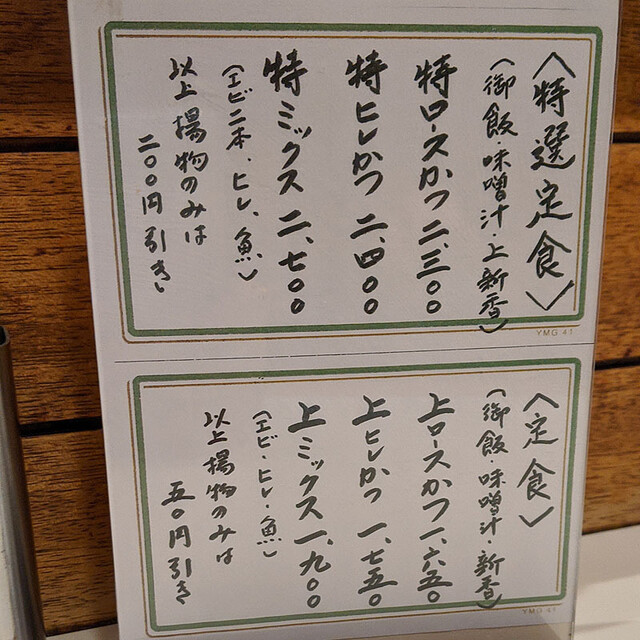 〈特選定食〉
(御飯・味噌汁・上新香)
特ロースかつ 二、三〇〇
特ヒレかつ 二、四〇〇
特ミックス 二、七〇〇
(エビ二本、ヒレ、魚)
以上揚物のみは
二〇〇円引き
YMG 41
〈定食〉
(御飯 味噌汁・新香)
上ロースかつ 一、六五〇
上ヒレかつ 一、七五〇
上ミックス 一、九〇〇
(エビ・ヒレ・魚)
以上揚物のみは
五〇円引き
YMG 41